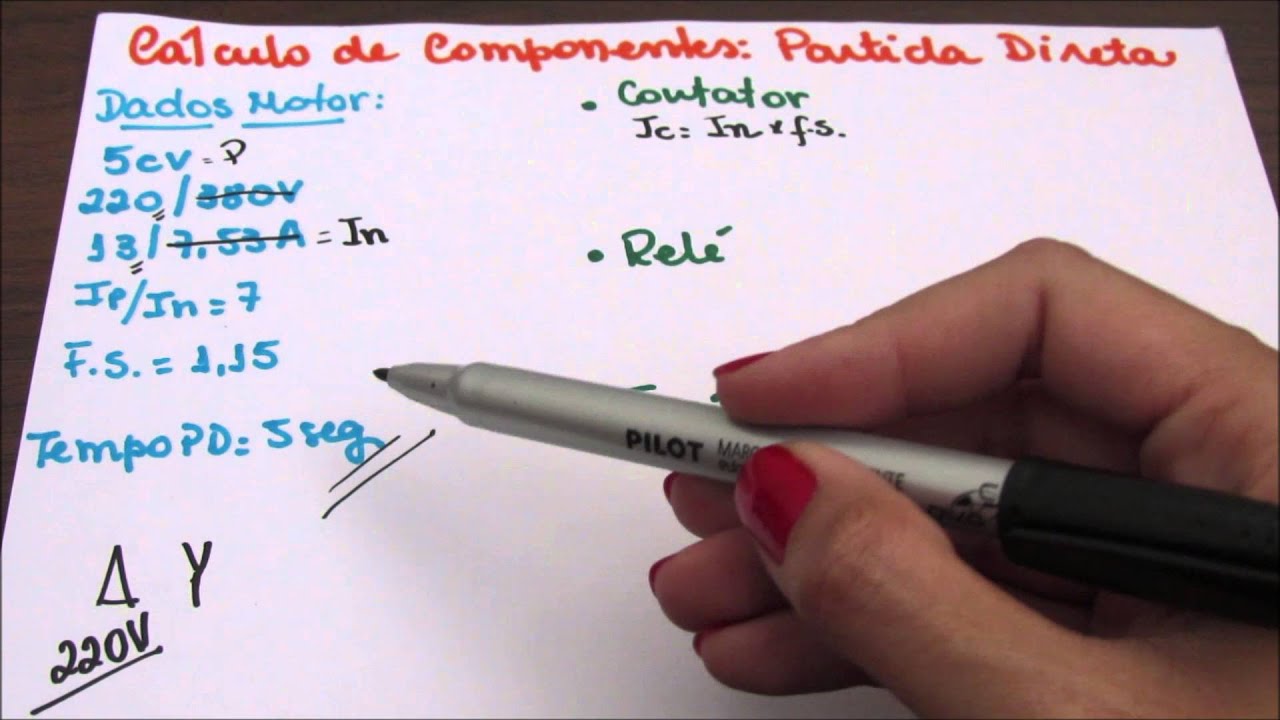 Calculo de Componentes: Partida Direta
Dados Motor:
5cv = P
220/380V
13/7,53A = In
Ip/In = 7
F.S. = 1,15
Tempo PD: 5 seg
Δ Y
220V
• Contator
Ic = In x f.s.
• Relé
PILOT